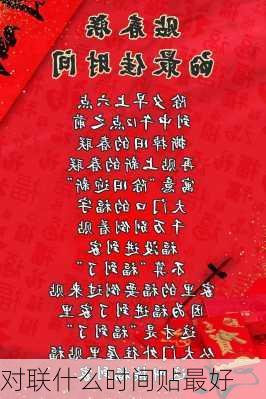 贴春联
的最佳时间
除夕早上六点
到中午12点之前
撕掉旧的春联
再贴上新的春联
寓意“除旧迎新”
大门口福字
千万别倒着贴
福没进家
不算“福到了”
家里的福要倒过来贴
因为福进到了家里
这才是“福到了”
从大门外往屋里贴
对联什么时间贴最好